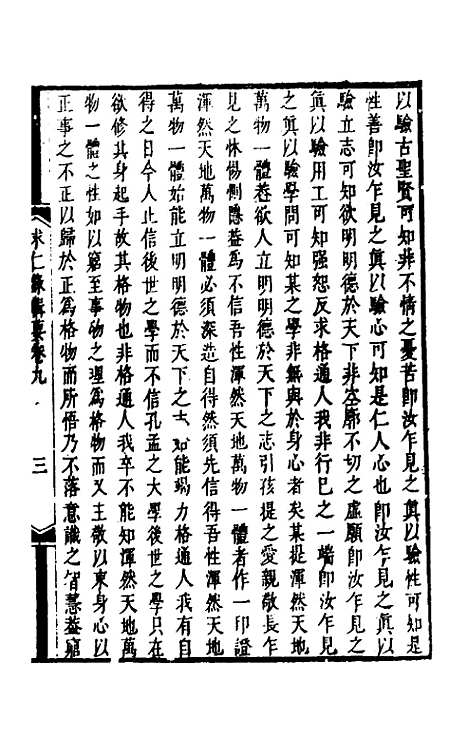 以驗古聖賢可知非不情之憂苦即汝乍見之眞以驗性可知是
性善即汝乍見之眞以驗心可知是仁人心也即汝乍見之眞以
驗立志可知欲明明德於天下非空廓不切之虛願即汝乍見之
眞以驗用工可知强恕反求格通人我非行己之一端即汝乍見
之眞以驗學問可知某之學非無與於身心者矣某提渾然天地
萬物一體卷欲人立明明德於天下之志引孩提之愛親敬長乍
見之怵惕惻隱葢爲不信吾性渾然天地萬物一體者作一印證
渾然天地萬物一體必須深造自得然須先信得吾性渾然天地
萬物一體始能立明明德於天下之志始能竭力格通人我有自
得之日今人止信後世之學而不信孔孟之大學後世之學只在
欲修其身起手故其格物也非格通人我卒不能知渾然天地萬
物一體之性如以窮至事物之理爲格物而又主敬以束身心以
正事之不正以歸於正爲格物而所悟乃不落意識之智慧葢窮
求仁錄輯要卷九
三